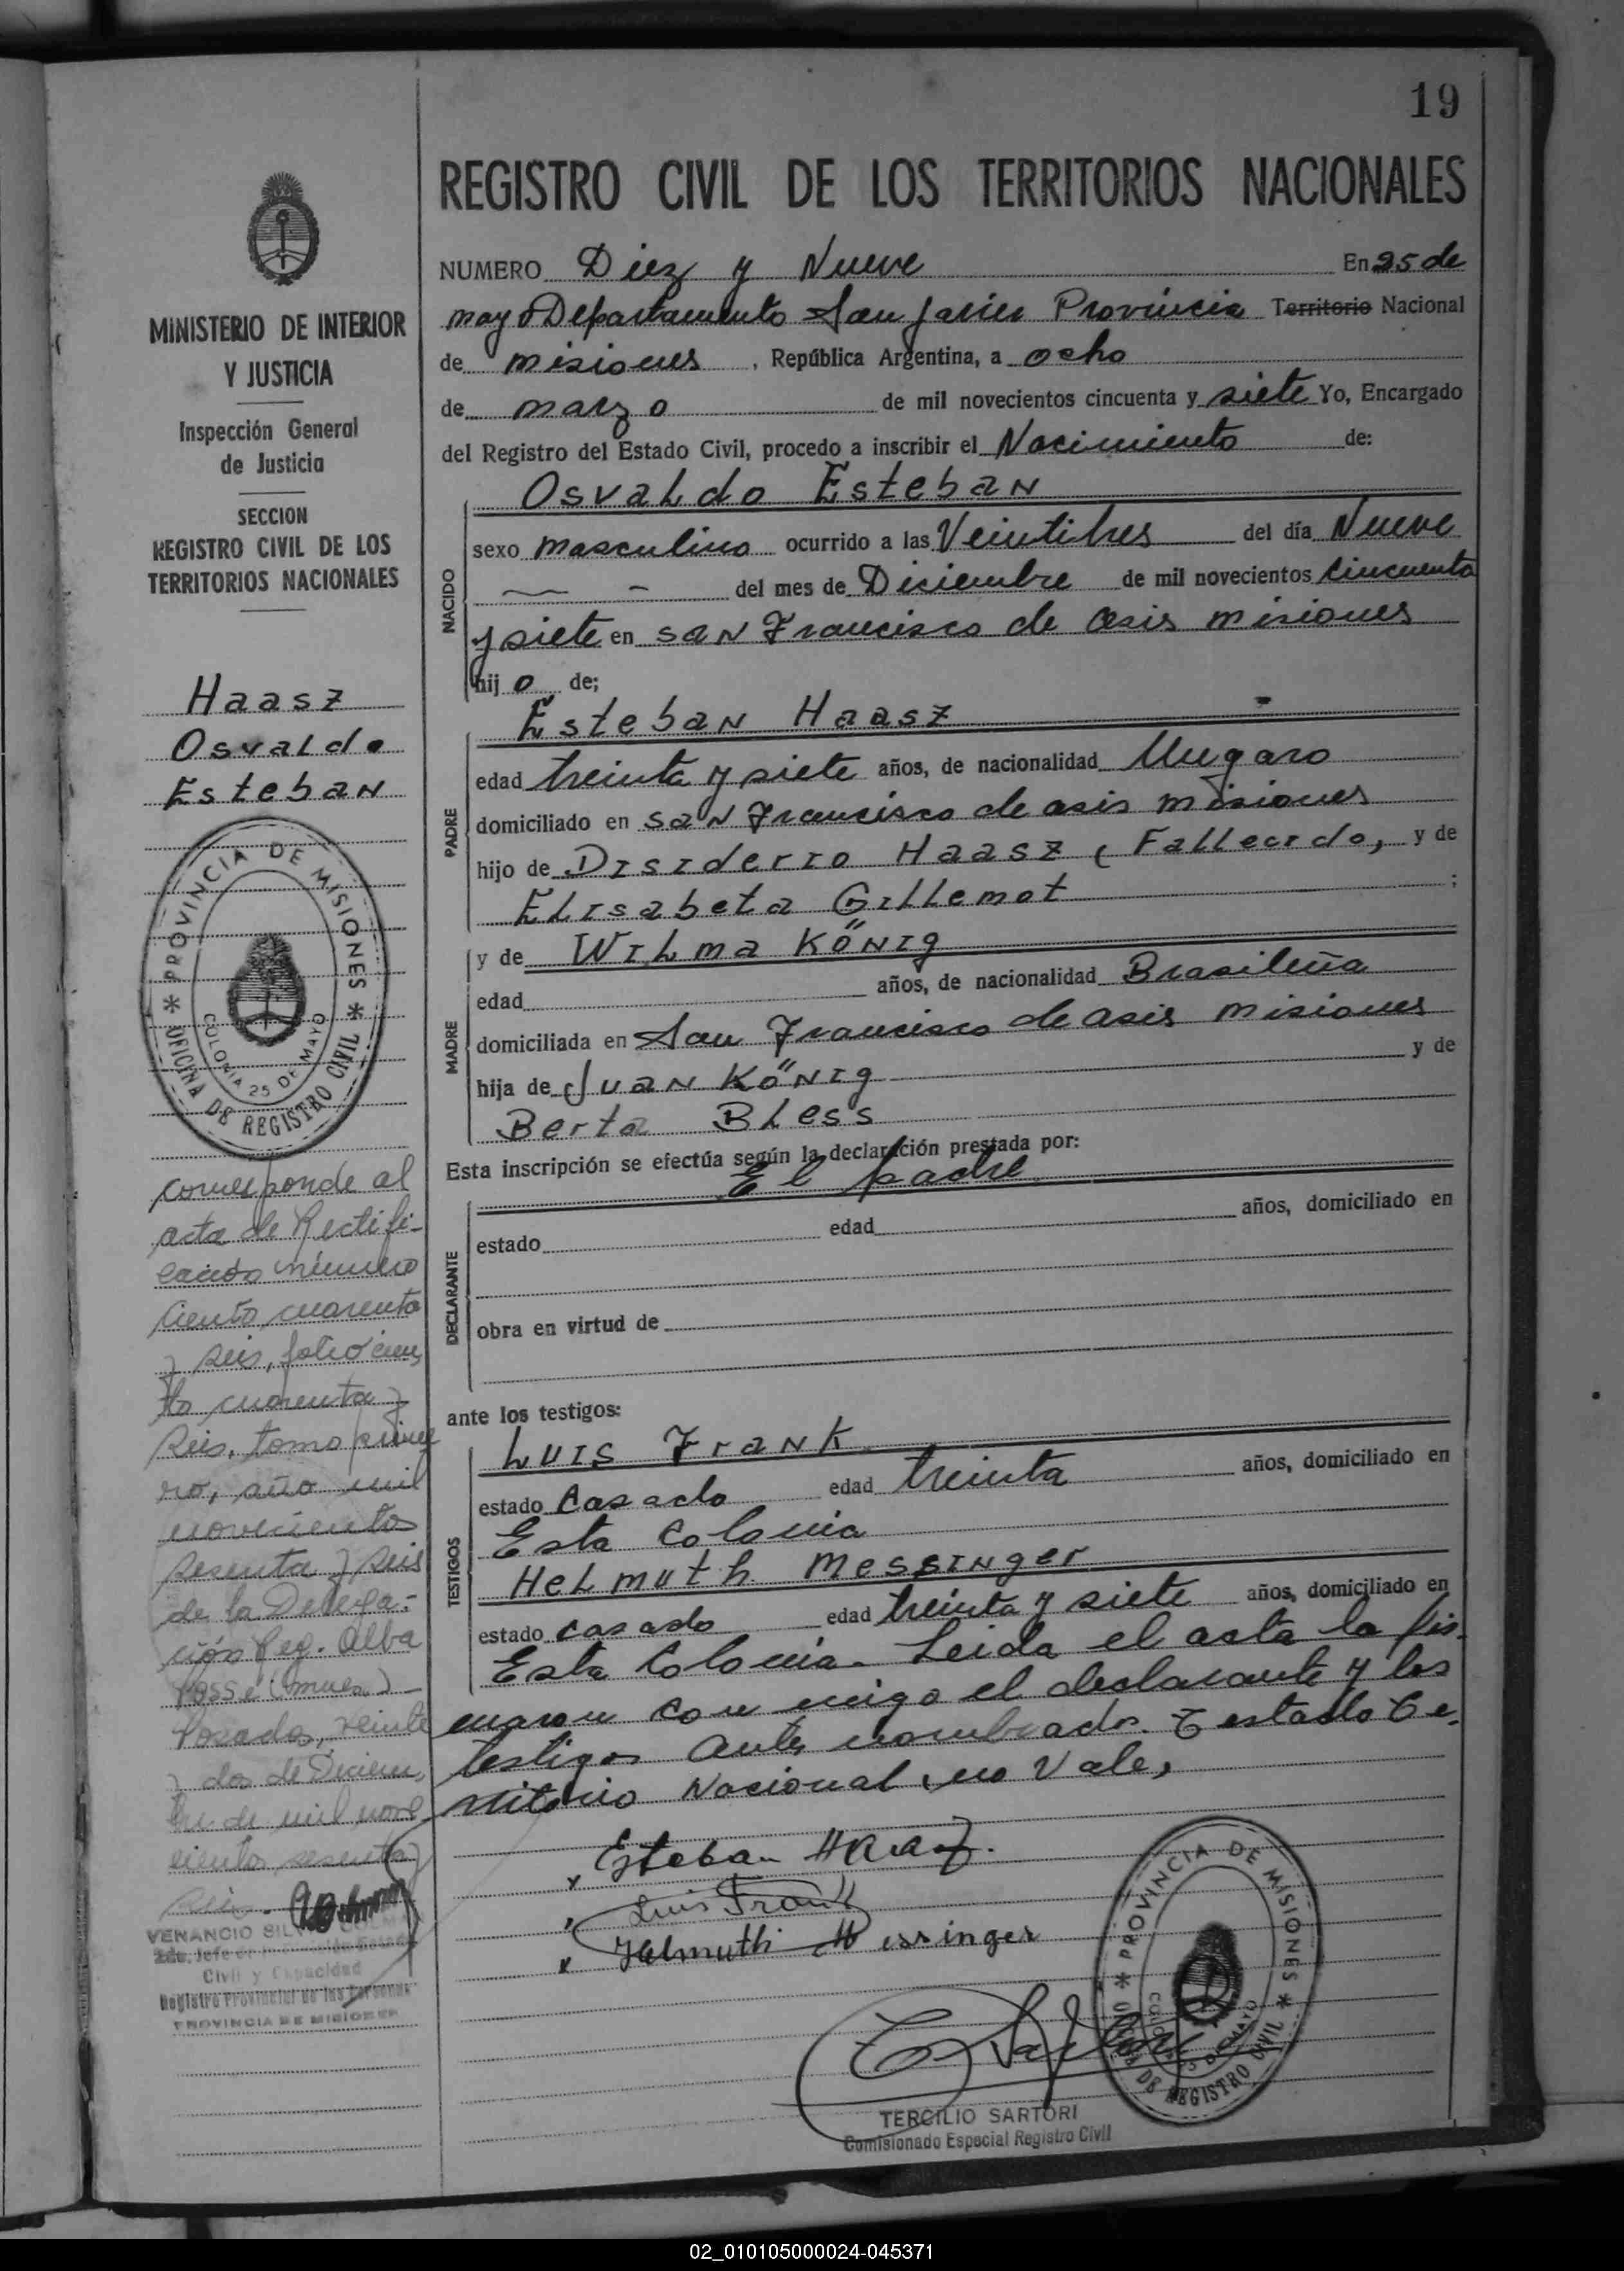 19
REGISTRO CIVIL DE LOS TERRITORIOS NACIONALES
NUMERO Diez y Nueve En 25 de
mayo Departamento San Javier Provincia Territorio Nacional
de misiones, República Argentina, a ocho
de marzo de mil novecientos cincuenta y siete Yo, Encargado
del Registro del Estado Civil, procedo a inscribir el Nacimiento de:
Osvaldo Esteban
NACIDO
sexo masculino ocurrido a las Veintitres del día Nueve
del mes de Diciembre de mil novecientos cincuenta
y siete en san Francisco de Asis misiones
hijo de;
Esteban Haasz
PADRE
edad treinta y siete años, de nacionalidad Ungaro
domiciliado en san Francisco de asis misiones
hijo de Disiderio Haasz (Fallecido, y de
Elisabeta Gillemot ;
MADRE
y de Wilma König
edad años, de nacionalidad Brasileña
domiciliada en San Francisco de asis misiones
hija de Juan König y de
Berta Bless
Esta inscripción se efectúa según la declaración prestada por:
El padre
DECLARANTE
estado edad años, domiciliado en
obra en virtud de
ante los testigos:
TESTIGOS
Luis Frank
estado casado edad treinta años, domiciliado en
Esta Colonia
Helmuth Messinger
estado casado edad treinta y siete años, domiciliado en
Esta Colonia. Leida el acta la fir-
maron con migo el declarante y los
testigos antes nombrados. Testado Te-
rritorio Nacional, no Vale,
Esteban Haasz.
Luis Frank
Helmuth Messinger
PROVINCIA DE MISIONES
OFICINA DE REGISTRO CIVIL
COLONIA 25 DE MAYO
TERCILIO SARTORI
Comisionado Especial Registro Civil
MINISTERIO DE INTERIOR
Y JUSTICIA
Inspección General
de Justicia
SECCION
REGISTRO CIVIL DE LOS
TERRITORIOS NACIONALES
Haasz
Osvaldo
Esteban
PROVINCIA DE MISIONES
OFICINA DE REGISTRO CIVIL
COLONIA 25 DE MAYO
corresponde al
acta de Rectifi-
cación número
ciento cuarenta
y seis, folio cien-
to cuarenta y
seis, tomo prime
ro, año mil
novecientos
sesenta y seis
de la Delega-
ción Reg. Alba
Posse (mnes.)
Posadas, veinte
y dos de Diciem-
bre de mil nove-
cientos sesenta y
seis.
VENANCIO
2do. Jefe
Civil y Capacidad
Registro Provincial de las Personas
PROVINCIA DE MISIONES
02_010105000024-045371